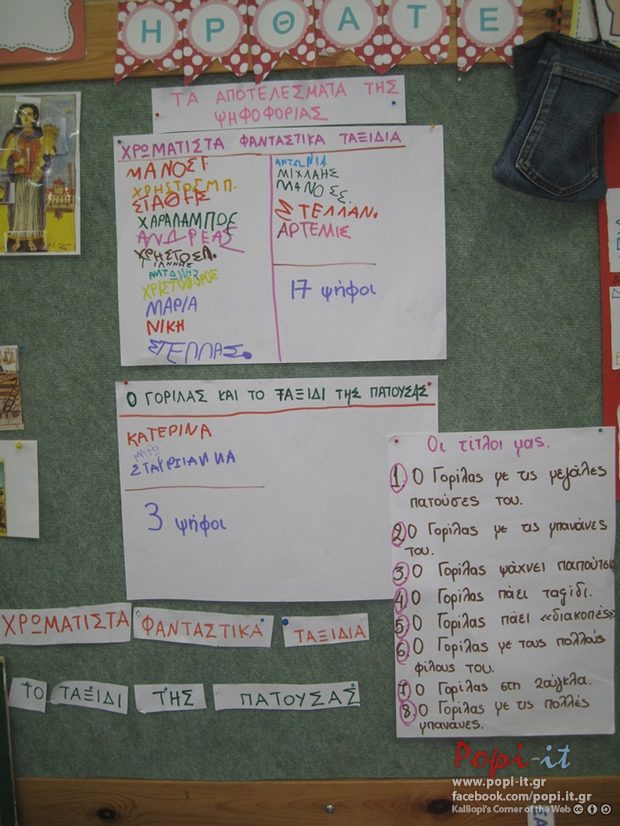 ΗΡΘΑΤΕ
ΤΑ ΑΠΟΤΕΛΕΣΜΑΤΑ ΤΗΣ
ΨΗΦΟΦΟΡΙΑΣ
ΧΡΩΜΑΤΙΣΤΑ ΦΑΝΤΑΣΤΙΚΑ ΤΑΞΙΔΙΑ
ΜΑΝΟΣΓ.
ΧΡΗΣΤΟΣΜΠ.
ΣΤΑΘΗΣ
ΧΑΡΑΛΑΜΠΟΣ
ΑΝΔΡΕΑΣ
ΧΡΗΣΤΟΣΛ.
ΓΙΑΝΝΗΣ
ΑΝΤΩΝΗΣ
ΧΡΙΣΤΟΦΟΡΟΣ
ΜΑΡΙΑ
ΝΙΚΗ
ΣΤΕΛΛΑΣ.
ΑΝΤΩΝΙΑ
ΜΙΧΛΗΣ
ΜΑΝΟΣΣ.
ΣΤΕΛΛΑΝ.
ΑΡΤΕΜΙΣ
17 ψήφοι
Ο ΓΟΡΙΛΑΣ ΚΑΙ ΤΟ ΤΑΞΙΔΙ ΤΗΣ ΠΑΤΟΥΣΑΣ
ΚΑΤΕΡΙΝΑ
ΜΑΡΩ
ΣΤΑΥΡΙΙΑΝΝΑ
3 ψήφοι
Οι τίτλοι μας.
1. Ο Γορίλας με τις μεγάλες
πατούσες του.
2. Ο Γορίλας με τις μπανάνες
του.
3. Ο Γορίλας ψάχνει παπούτσι
4. Ο Γορίλας πάει ταξίδι.
5. Ο Γορίλας πάει «διακοπές»
6. Ο Γορίλας με τους πολλούς
φίλους του.
7. Ο Γορίλας στη ζούγκλα.
8. Ο Γορίλας με τις πολλές
μπανάνες.
ΧΡΩΜΑΤΙΣΤΑ ΦΑΝΤΑΣΤΙΚΑ ΤΑΞΙΔΙΑ
ΤΟ ΤΑΞΙΔΙ ΤΗΣ ΠΑΤΟΥΣΑΣ
Popi-it
www.popi-it.gr
facebook.com/popi.it.gr
Kalliopi's Corner of the Web